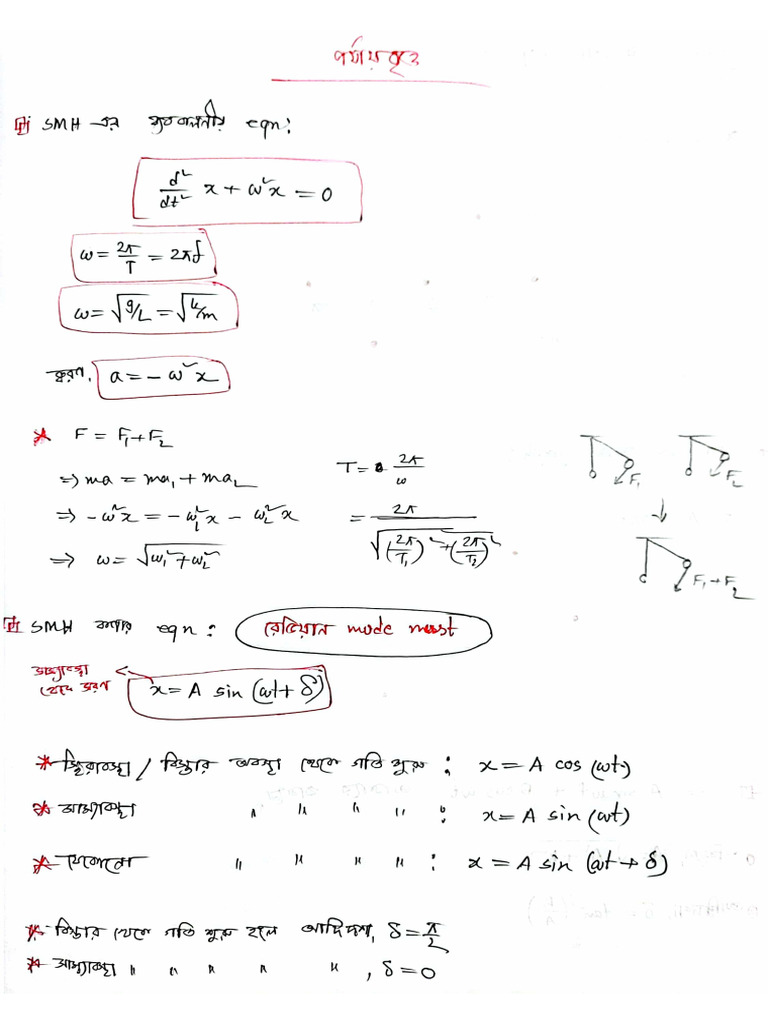 পর্যায়বৃত্ত
SMH এর ব্যবকলনীয় eqn:
d²/dt² x + ω²x = 0
ω = 2π/T = 2πf
ω = √g/L = √k/m
ত্বরণ, a = - ω²x
* F = F₁ + F₂
⇒ ma = ma₁ + ma₂
⇒ -ω²x = -ω₁²x - ω₂²x
⇒ ω = √ω₁² + ω₂²
T = 2π/ω
= 2π/√(2π/T₁)² + (2π/T₂)²
F₁
F₂
F₁ + F₂
SMH eqn: রেডিয়ান mode must
সাম্যাবস্থা থেকে সরণ
x = A sin (ωt + δ)
* স্থিরাবস্থা / বিস্তার অবস্থা থেকে গতি শুরু : x = A cos (ωt)
* সাম্যাবস্থা " " " " : x = A sin (ωt)
* যেকোনো " " " " : x = A sin (ωt + δ)
* বিস্তার থেকে গতি শুরু হলে আদিদশা, δ = π/2
* সাম্যাবস্থা " " " " " , δ = 0